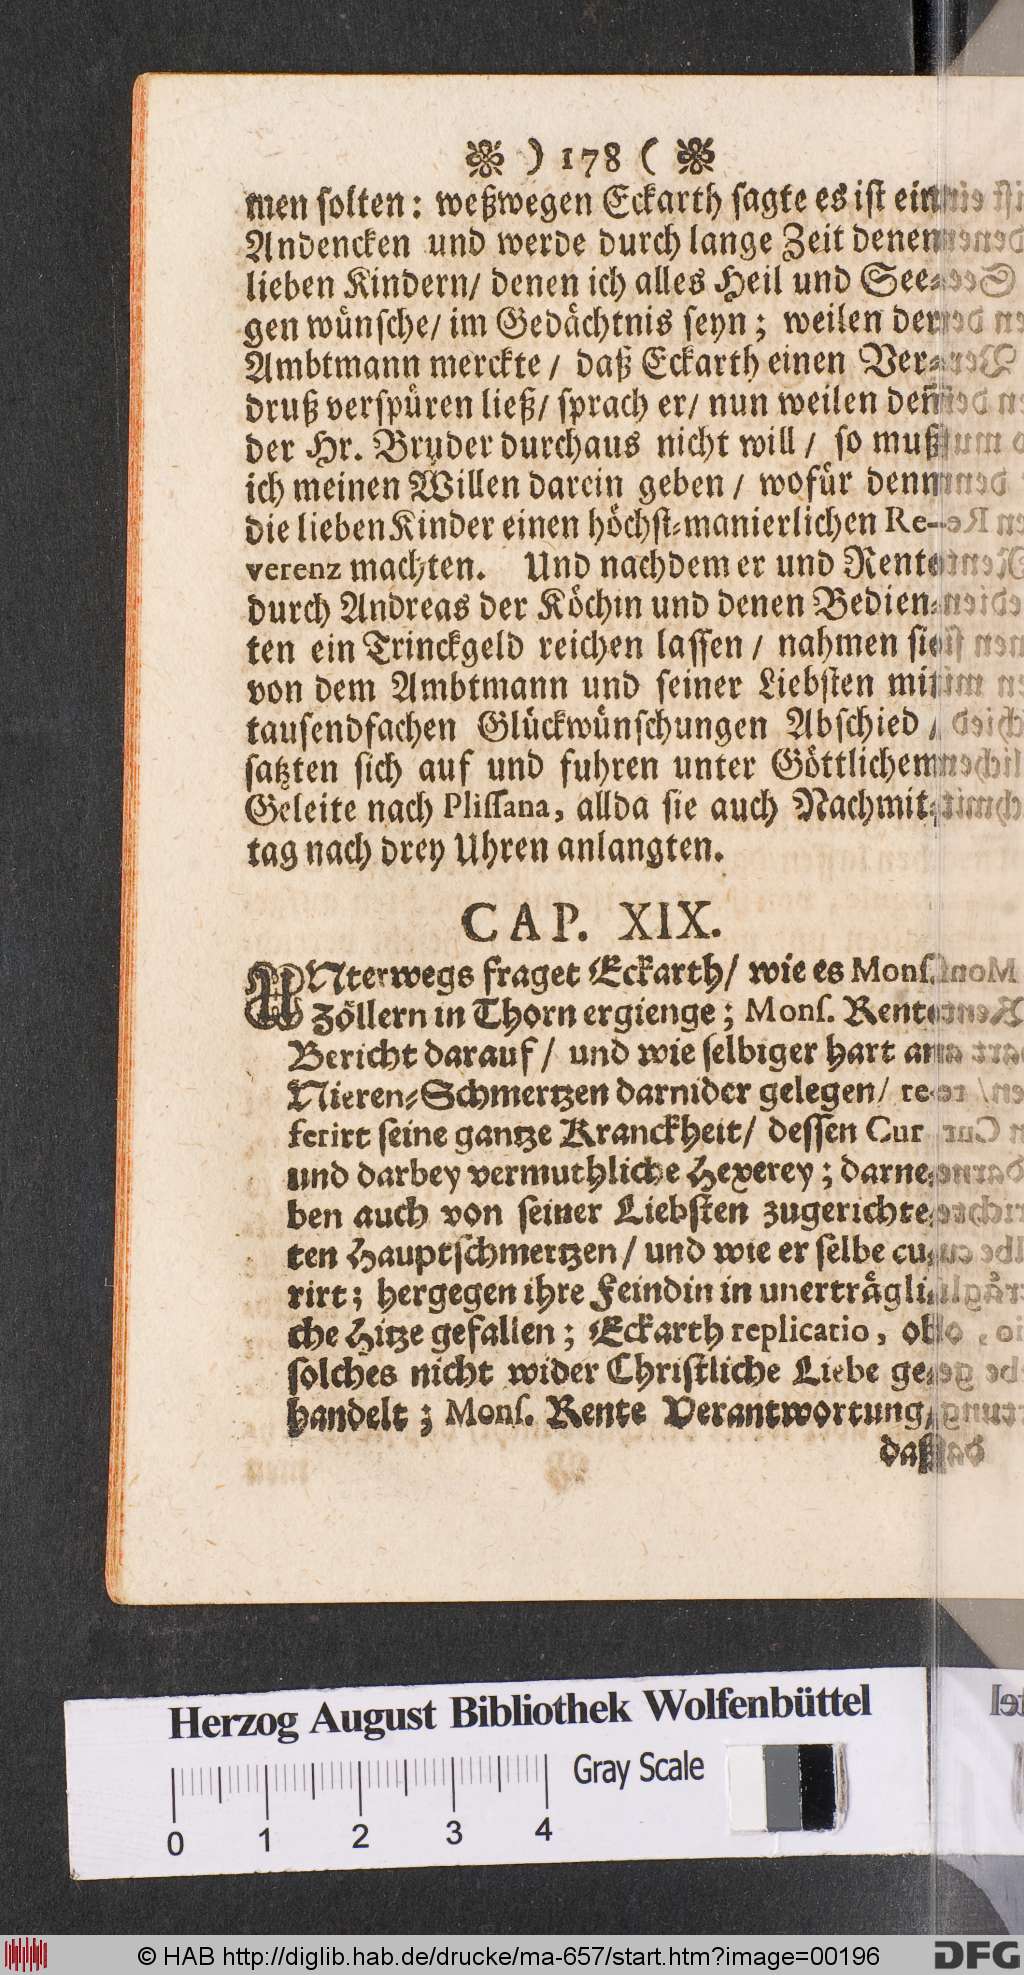 ❀ ) 178 ( ❀
men solten: weßwegen Eckarth sagte es ist ein
Andencken und werde durch lange Zeit denen
lieben Kindern/ denen ich alles Heil und See-
gen wünsche/ im Gedächtnis seyn; weilen der
Ambtmann merckte / daß Eckarth einen Ver-
druß verspüren ließ/ sprach er/ nun weilen deñ
der Hr. Bruder durchaus nicht will / so muß
ich meinen Willen darein geben / wofür denn
die lieben Kinder einen höchst-manierlichen Re-
verenz machten. Und nachdem er und Rente
durch Andreas der Köchin und denen Bedien-
ten ein Trinckgeld reichen lassen / nahmen sie
von dem Ambtmann und seiner Liebsten mit
tausendfachen Glückwünschungen Abschied /
satzten sich auf und fuhren unter Göttlichem
Geleite nach Plissana, allda sie auch Nachmit-
tag nach drey Uhren anlangten.
CAP. XIX.
UNterwegs fraget Eckarth/ wie es Mons.
Zöllern in Thorn ergienge; Mons. Rente
Bericht darauf / und wie selbiger hart an
Nieren-Schmertzen darnider gelegen/ re-
ferirt seine gantze Kranckheit/ dessen Cur
und darbey vermuthliche Hexerey; darne-
ben auch von seiner Liebsten zugerichte-
ten Hauptschmertzen / und wie er selbe cu-
rirt; hergegen ihre Feindin in unerträgli-
che Hitze gefallen; Eckarth replicatio, ob
solches nicht wider Christliche Liebe ge-
handelt; Mons. Rente Verantwortung,
daß
Herzog August Bibliothek Wolfenbüttel
Gray Scale
0 1 2 3 4
© HAB http://diglib.hab.de/drucke/ma-657/start.htm?image=00196
DFG